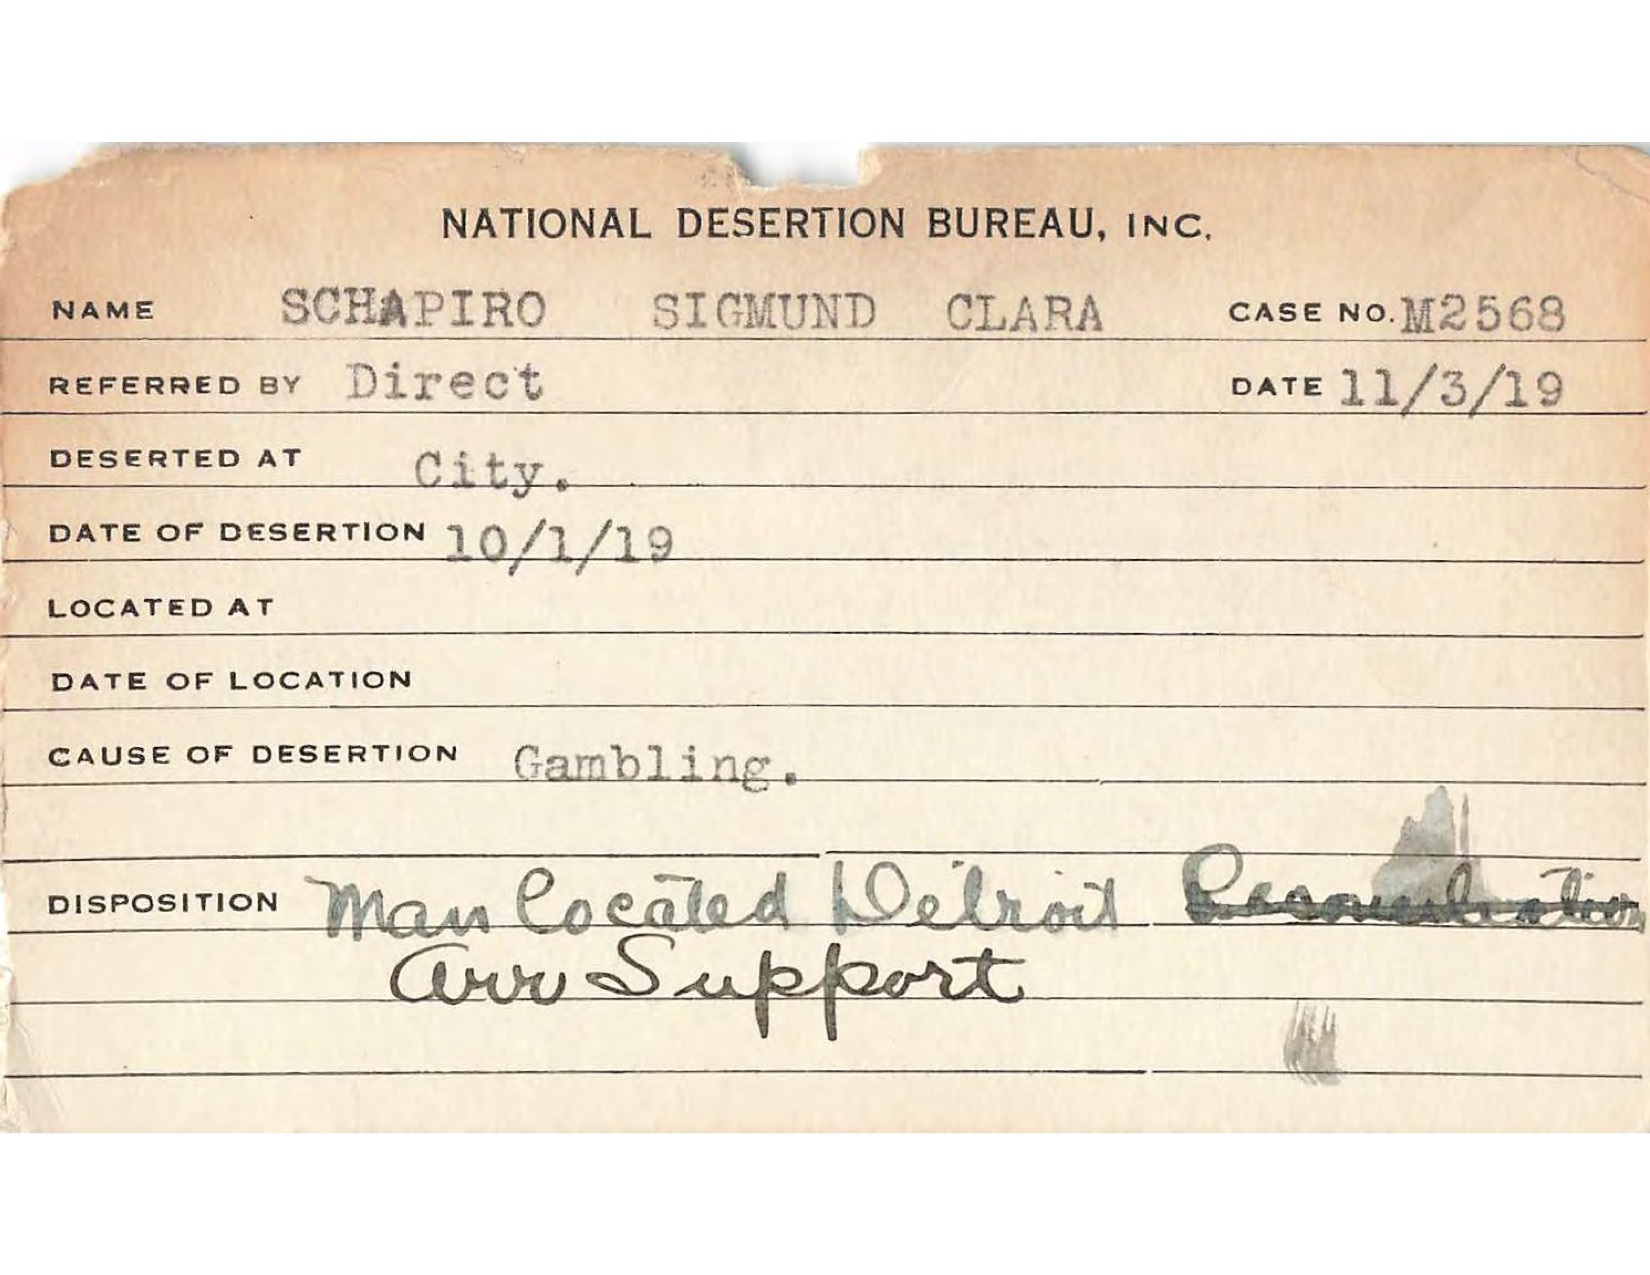 NATIONAL DESERTION BUREAU, INC.
NAME SCHAPIRO SIGMUND CLARA CASE NO. M2568
REFERRED BY Direct DATE 11/3/19
DESERTED AT City.
DATE OF DESERTION 10/1/19
LOCATED AT
DATE OF LOCATION
CAUSE OF DESERTION Gambling.
DISPOSITION Man located Detroit Reconciliation
Arr Support